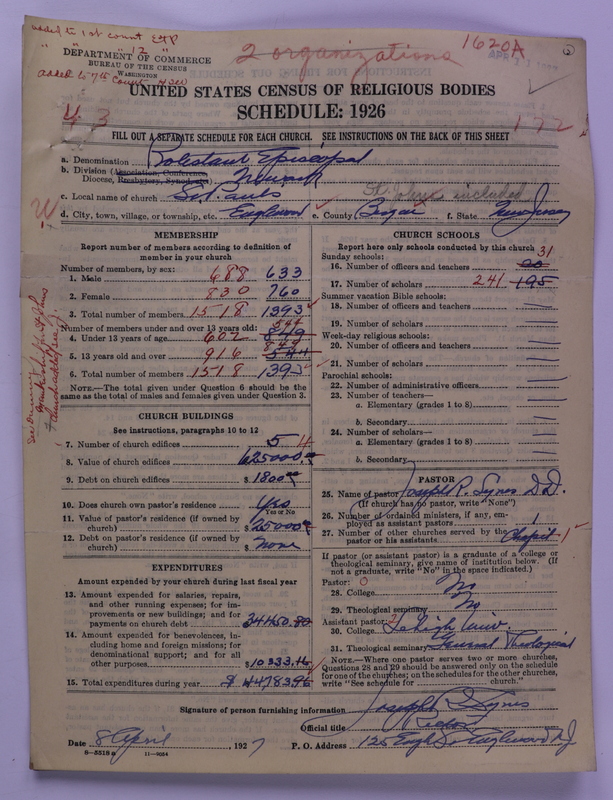 added to 1st count EHP
" " 12 "
DEPARTMENT OF COMMERCE
BUREAU OF THE CENSUS
WASHINGTON
added to 7th Count
2 organizations
1620A
2
UNITED STATES CENSUS OF RELIGIOUS BODIES
SCHEDULE: 1926
43
172
FILL OUT A SEPARATE SCHEDULE FOR EACH CHURCH. SEE INSTRUCTIONS ON THE BACK OF THIS SHEET
a. Denomination Protestant Episcopal
b. Division (Association, Conference, Diocese, Presbytery, Synod, etc.) Newark
c. Local name of church St. Pauls St Johns included
d. City, town, village, or township, etc. Englewood e. County Bergen f. State New Jersey
MEMBERSHIP
Report number of members according to definition of member in your church
Number of members, by sex:
1. Male 688 633
2. Female 830 760
3. Total number of members 1518 1393
Number of members under and over 13 years old:
4. Under 13 years of age 602 544 849
5. 13 years old and over 916 849 544
6. Total number of members 1518 1393
NOTE.—The total given under Question 6 should be the same as the total of males and females given under Question 3.
CHURCH BUILDINGS
See instructions, paragraphs 10 to 12
7. Number of church edifices 5 4
8. Value of church edifices 625000.
9. Debt on church edifices $ 1800.
10. Does church own pastor's residence? Yes
Yes or No
11. Value of pastor's residence (if owned by church) $ 25000
12. Debt on pastor's residence (if owned by church) $ None
EXPENDITURES
Amount expended by your church during last fiscal year
13. Amount expended for salaries, repairs, and other running expenses; for improvements or new buildings; and for payments on church debt 34450.50
14. Amount expended for benevolences, including home and foreign missions; for denominational support; and for all other purposes $ 10333.46
15. Total expenditures during year $ 44783.96
CHURCH SCHOOLS
Report here only schools conducted by this church
Sunday schools:
16. Number of officers and teachers 31
17. Number of scholars 241 195
Summer vacation Bible schools:
18. Number of officers and teachers
19. Number of scholars
Week-day religious schools:
20. Number of officers and teachers
21. Number of scholars
Parochial schools:
22. Number of administrative officers
23. Number of teachers—
a. Elementary (grades 1 to 8)
b. Secondary
24. Number of scholars—
a. Elementary (grades 1 to 8)
b. Secondary
PASTOR
25. Name of pastor Joseph R. Lynes D.D.
(If church has no pastor, write "None")
26. Number of ordained ministers, if any, employed as assistant pastors 1
27. Number of other churches served by the pastor or his assistants 1
If pastor (or assistant pastor) is a graduate of a college or theological seminary, give name of institution below. (If not a graduate, write "No" in the space indicated.)
Pastor: 0
28. College No
29. Theological seminary No
Assistant pastor: 2
30. College Lehigh Univ.
31. Theological seminary General Theological
NOTE.—Where one pastor serves two or more churches, Questions 28 and 29 should be answered only on the schedule for one of the churches; on the schedules for the other churches, write "See schedule for church."
Signature of person furnishing information Joseph R Lynes
Official title Rector
Date 8 April, 1927 P. O. Address 125 Engle St Englewood NJ
8—5518 a 11—9034